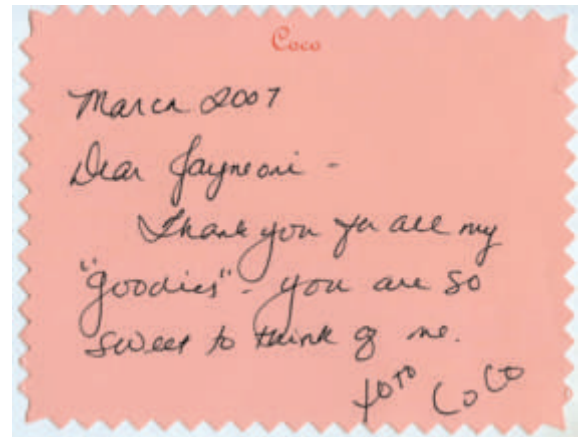 Coco
March 2007
Dear Jaymeoni -
Thank you for all my
"goodies" - you are so
sweet to think of me.
xoxo Coco